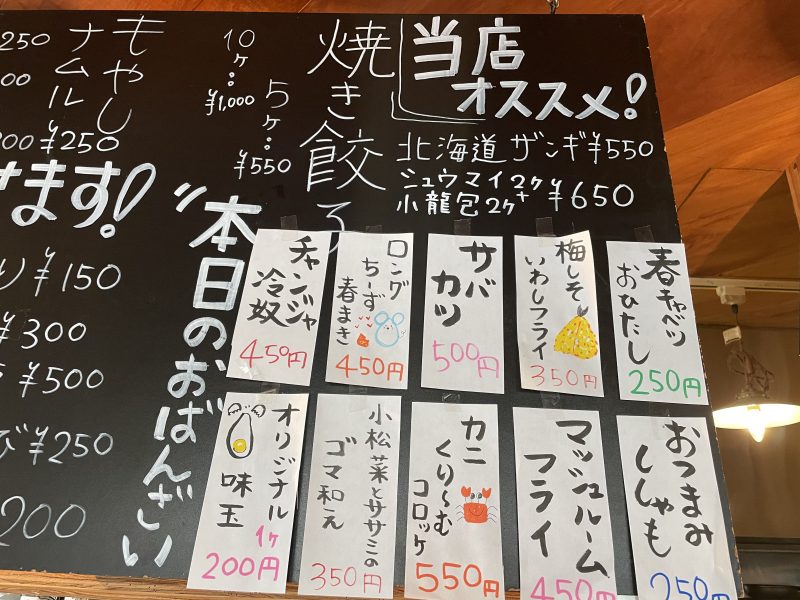 当店
オススメ!
北海道ザンギ¥550
シュウマイ2ケ+
小龍包2ケ
¥650
焼き餃子
5ケ:
¥550
10ケ:
¥1,000
もやし
ナムル
¥250
250
00
200
けます!
¥150
¥300
¥500
び¥250
200
"本日のおばんざい
春キャベツ
おひたし
250円
梅しそ
いわしフライ
350円
サバ
カツ
500円
ロング
ちーず
春まき
450円
チャンジャ
冷奴
450円
おつまみ
ししゃも
250円
マッシュルーム
フライ
450円
カニ
くり〜む
コロッケ
550円
小松菜とササミの
ゴマ和え
350円
オリジナル
味玉
1ケ
200円